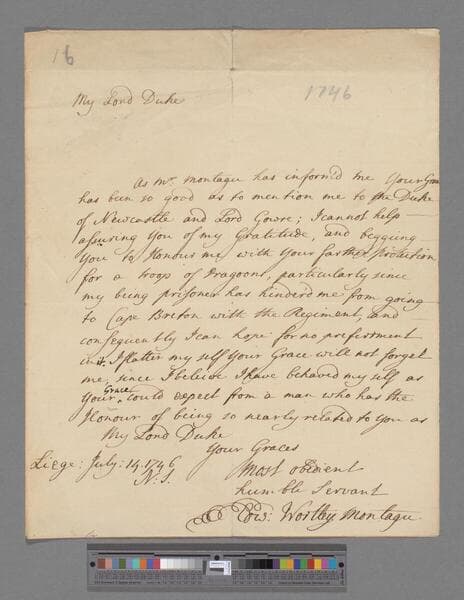 16
1746
My Lord Duke
As Mr. Montagu has inform'd me Your Grace
has been so good as to mention me to the Duke
of Newcastle and Lord Gowre; I cannot help
assuring You of my Gratitude, and begging
You to Honour me with Your farther protection
for a troop of Dragoons, particularly since
my being prisoner has hinder'd me from going
to Cape Breton with the Regiment, and
consequently I can hope for no preferment
in it. I flatter my self Your Grace will not forget
me, since I believe I have behaved my self as
Your Grace could expect from a man who has the
Honour of being so nearly related to You as
My Lord Duke
Your Graces
Liege: July: 14. 1746
N: S.
most obedient
humble Servant
Edw: Wortley Montagu